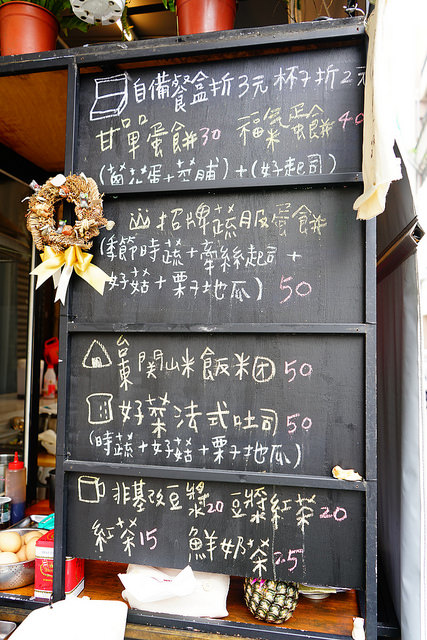 自備餐盒折3元 杯子折2元
甘單蛋餅30 福氣蛋餅40
(菌菇蛋+菜脯)+(好起司)
招牌蔬服蛋餅
(季節時蔬+牽絲起司+
好菇+栗子地瓜) 50
台東関山米飯米团50
好菜法式吐司50
(時蔬+好菇+栗子地瓜)
非基改豆漿20 豆漿紅茶20
紅茶15 鮮奶茶25